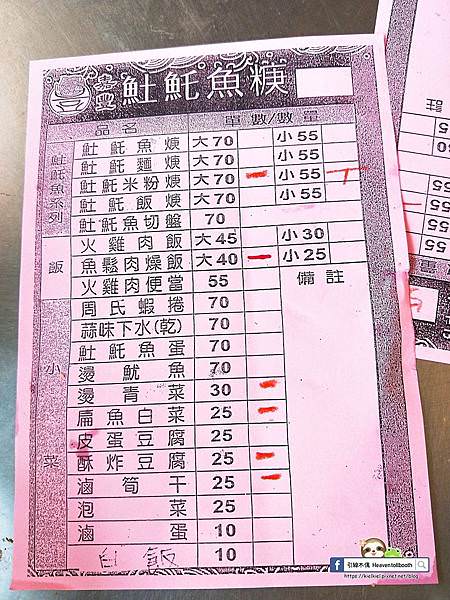 𩵚魠魚焿
品名 單數/數量
𩵚魠魚系列
𩵚魠魚焿 大70 小55
𩵚魠麵焿 大70 小55
𩵚魠米粉焿 大70 一 小55 丅
𩵚魠飯焿 大70 小55
𩵚魠魚切盤 70
飯
火雞肉飯 大45 小30
魚鬆肉燥飯 大40 一 小25
火雞肉便當 55 備註
小菜
周氏蝦捲 70
蒜味下水(乾) 70
𩵚魠魚蛋 70
燙魷魚 70
燙青菜 30 一
扁魚白菜 25 一
皮蛋豆腐 25
酥炸豆腐 25 一
滷筍干 25 一
泡菜 25
滷蛋 10
白飯 10
註
55
55
55
55
引線不僅 Heaventollbooth
https://kielkiel.pixnet.net/blog